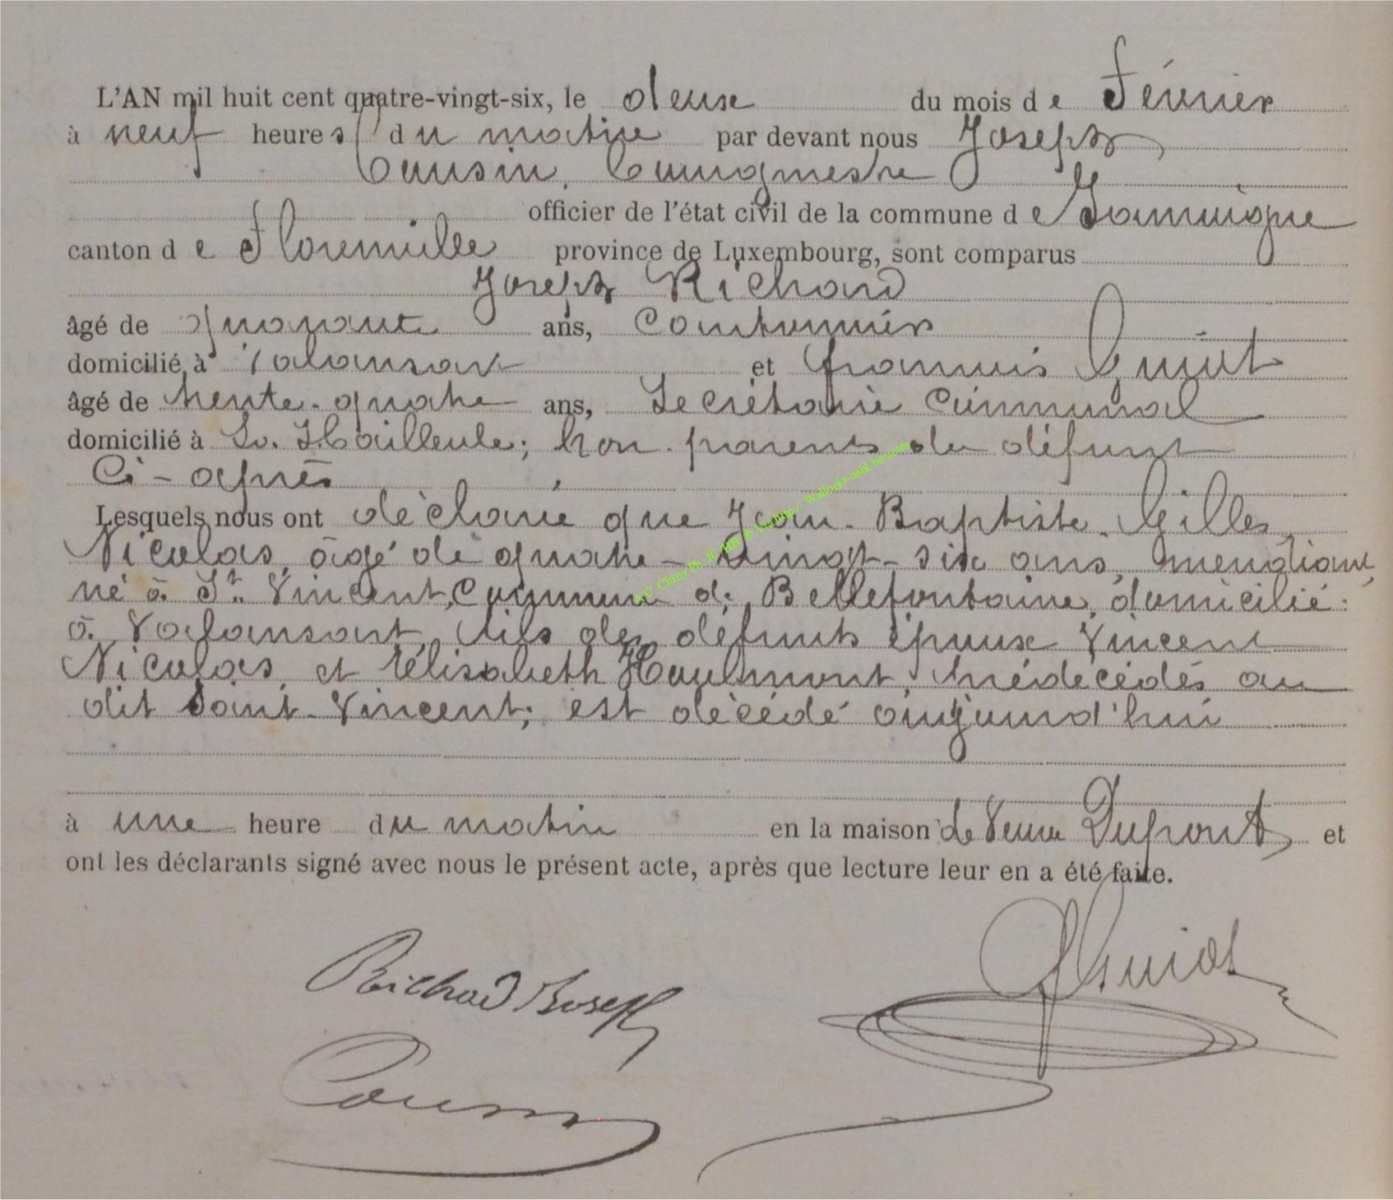 L'AN mil huit cent quatre-vingt-six, le deux du mois de Février
à neuf heures du matin par devant nous Joseph
Cousin, bourgmestre
officier de l'état civil de la commune de Jamoigne
canton de Florenville province de Luxembourg, sont comparus
Joseph Richard
âgé de quarante ans, Cantonnier
domicilié à Valansart et François Guiot
âgé de trente-quatre ans, Secrétaire Communal
domicilié à La Hailleule; non parents du défunt
Ci-après
Lesquels nous ont déclaré que Jean-Baptiste-Gilles
Nicolas, âgé de quatre-vingt-six ans, mendiant,
né à St. Vincent, Commune de Bellefontaine, domicilié
à Valansart, fils des défunts époux Vincent
Nicolas, et Elisabeth Haulmont, prédécédés au
dit Saint-Vincent; est décédé aujourd'hui
à une heure du matin en la maison de Veuve Dupont, et
ont les déclarants signé avec nous le présent acte, après que lecture leur en a été faite.
Richard Joseph
Guiot
Cousin